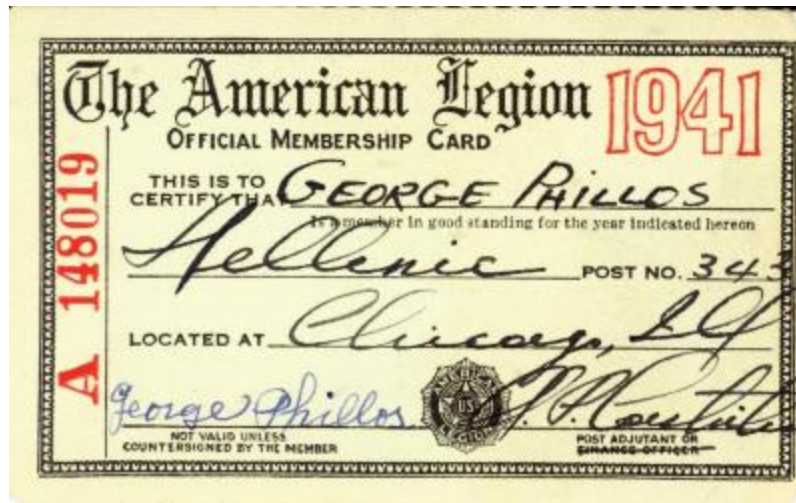 The American Legion 1941
OFFICIAL MEMBERSHIP CARD
A 148019
THIS IS TO
CERTIFY THAT GEORGE PHILLOS
Is a member in good standing for the year indicated hereon
Hellenic POST NO. 343
LOCATED AT Chicago, Ill
George Phillos
NOT VALID UNLESS
COUNTERSIGNED BY THE MEMBER
AMERICAN
US
LEGION
POST ADJUTANT OR
FINANCE OFFICER